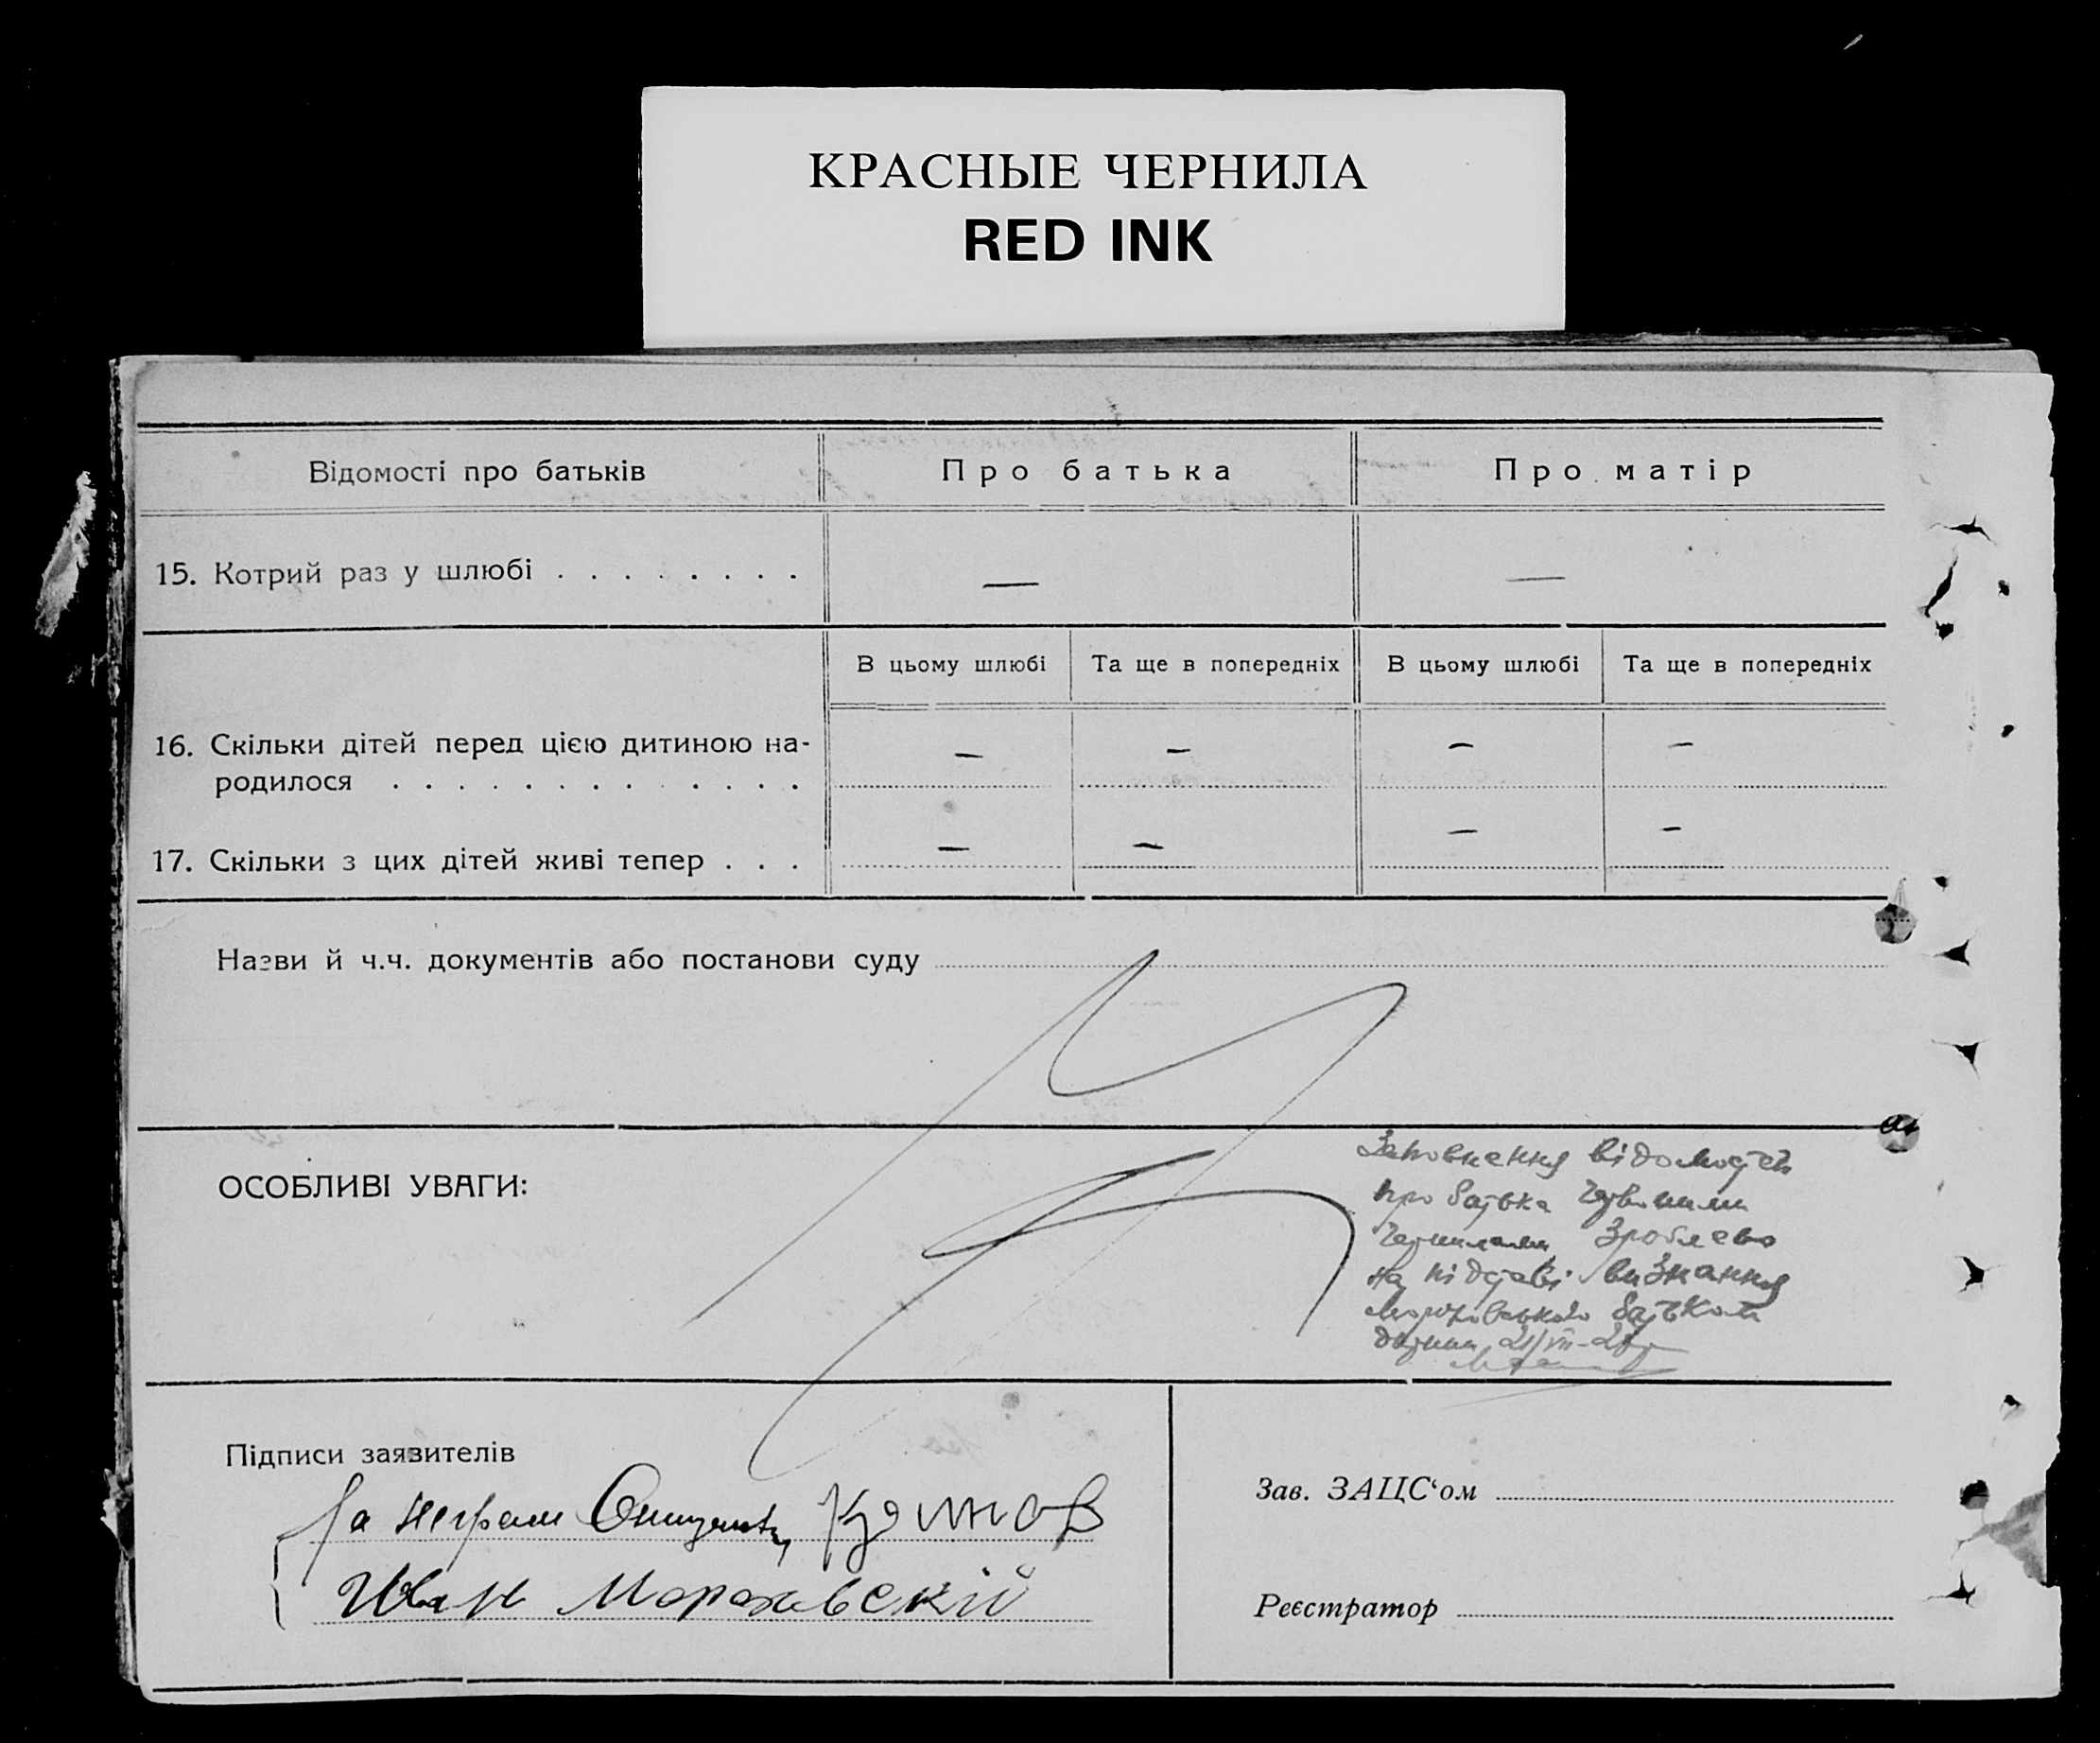 КРАСНЫЕ ЧЕРНИЛА
RED INK
Відомості про батьків
Про батька
Про матір
15. Котрий раз у шлюбі . . . . . . . .
—
—
В цьому шлюбі
Та ще в попередніх
В цьому шлюбі
Та ще в попередніх
16. Скільки дітей перед цією дитиною на-
родилося . . . . . . . . . . . . .
—
—
—
—
17. Скільки з цих дітей живі тепер . . .
—
—
—
—
Назви й ч.ч. документів або постанови суду
ОСОБЛИВІ УВАГИ:
Заповнення відомостей
про батька червоними
чернилами зроблено
на підставі визнання
батьком
дитини
Підписи заявителів
За неграм
Иван Мораховский
Зав. ЗАЦС‘ом
Реєстратор